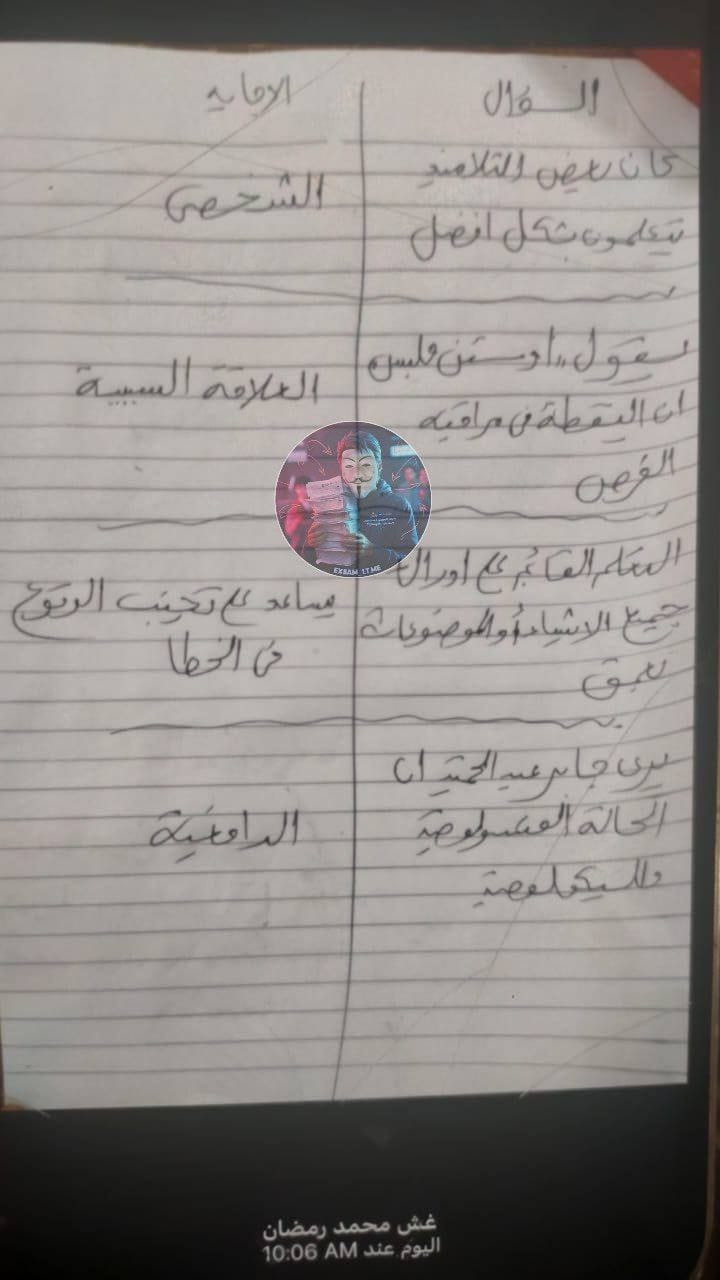 السؤال
الاجابه
كان بعض التلاميذ
يتعلمون بشكل افضل
الشخصى
يقول "اوستن فلبس
ان اليقظة فى مراقبه
الفرص
العلاقة السببية
التعلم القائم على ادراك
جميع الاشياء أو الموضوعات
بعمق
يساعد على تجنب الوقوع
فى الخطا
يرى جابر عبد الحميد ان
الحالة الفسيولوجية
والسيكولوجية
الدافعية
EXEAM
غش محمد رمضان
اليوم عند 10:06 AM